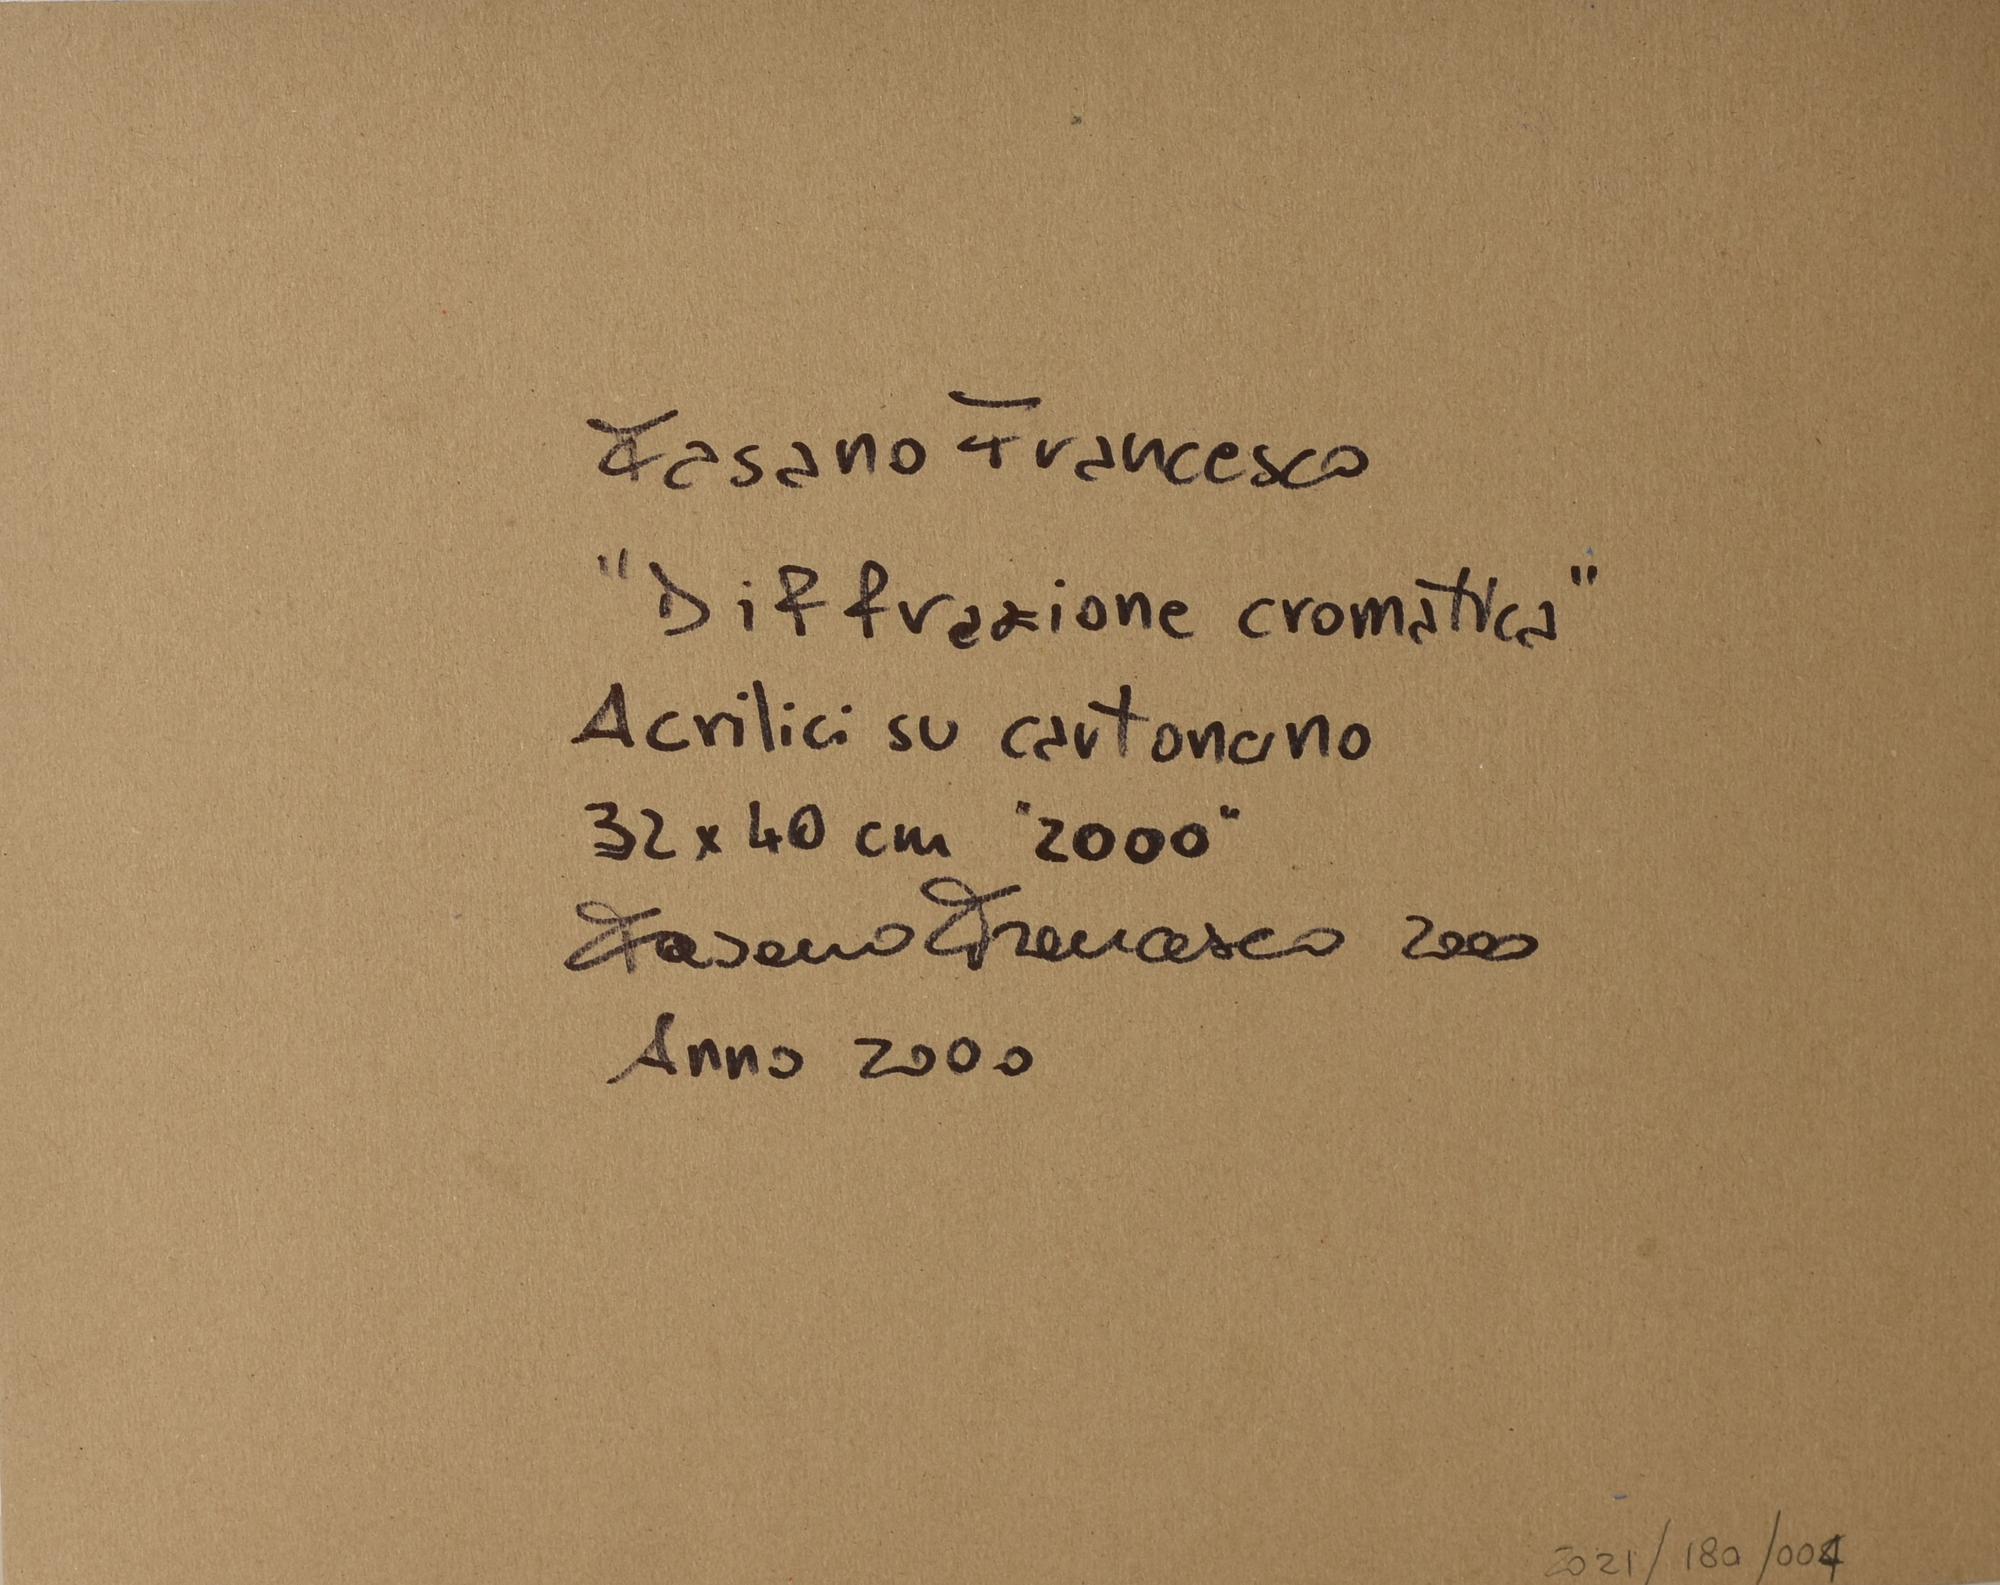 Fasano Francesco
"Diffrazione cromatica"
Acrilici su cartonano
32x40 cm "2000"
Fasano Francesco 2000
Anno 2000
2021/180/004